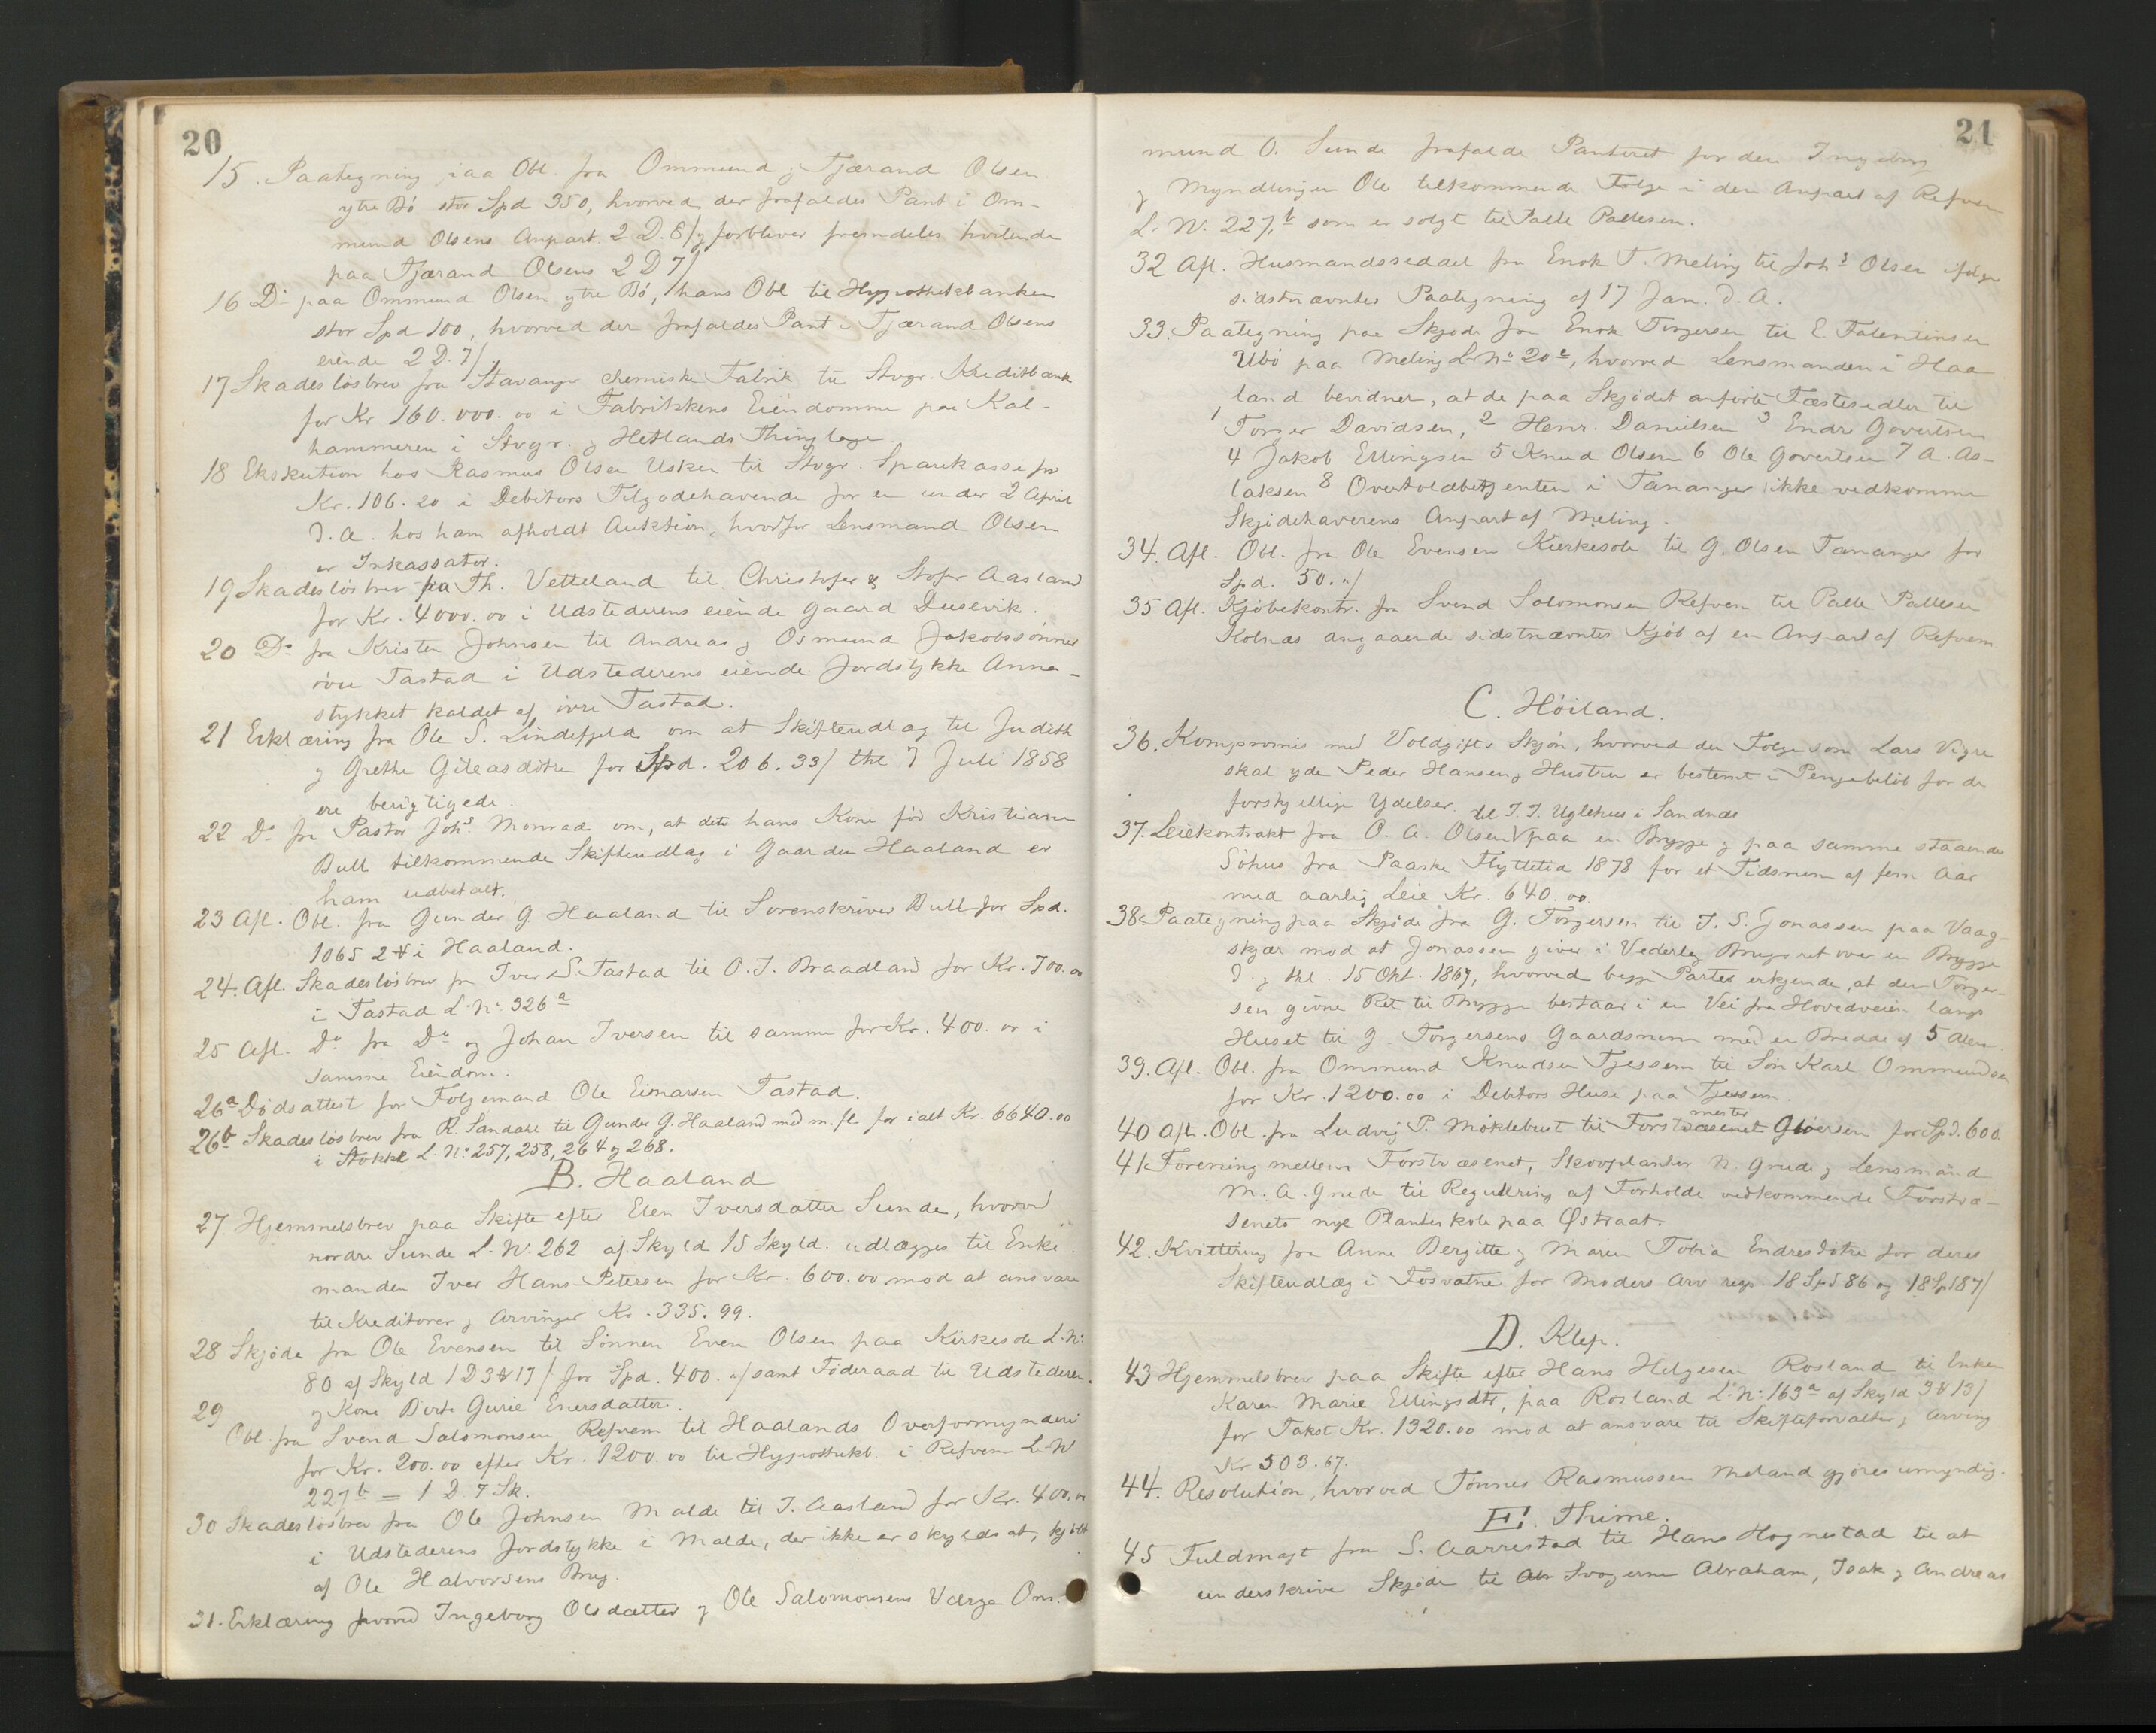 20
15. Paategning paa Obl. fra Ommund & Tjærand Olsen
ytre Bö stor Spd 350, hvorved der frafaldes Pant i Om-
mund Olsens Anpart 2 D. 8/ & forbliver fremdeles hvilende
paa Tjærand Olsens 2 D 7/
16 Do paa Ommund Olsen ytre Bö, hans Obl til Hypothekbanken
stor Spd 100, hvorved der frafaldes Pant i Tjærand Olsens
eiende 2 D. 7/.
17 Skadeslösbrev fra Stavanger chemiske Fabrik til Stvgr. Kreditbank
for Kr 160.000.00 i Fabrikkens Eiendomme paa Kal-
hammeren i Stvgr. & Hetlands Thinglage.
18 Ekskution hos Rasmus Olsen Usken til Stvgr. Sparekasse for
Kr. 106.20 i Debitors Tilgodehavende for en under 2 April
d. A. hos ham afholdt Auktion, hvorfor Lensmand Olsen
er Inkassator.
19 Skadeslösbrev fra Th. Vetteland til Christofer & Stofer Aasland
for Kr. 4000.00 i Udstederens eiende Gaard Dusevik.
20 Do fra Kristen Johnsen til Andreas & Osmund Jakobssönner
övre Tastad i Udstederens eiende Jordstykke Anna-
stykket kaldet af övre Tastad.
21 Erklæring fra Ole S. Lindefjeld om at Skifteudlæg til Judith
& Grethe Gileasdötre for Spd. 206.33/ thl 7 Juli 1858
ere berigtigede.
22 Do fra Pastor Johs. Monrad om, at det hans Kone föd Kristiane
Bull tilkommende Skifteudlæg i Gaarden Haaland er
ham udbetalt.
23 Afl. Obl. fra Gunder G. Haaland til Sorenskriver Bull for Spd.
1065 2 # i Haaland.
24. Afl. Skadeslösbrev fra Iver S. Tastad til O. J. Braadland for Kr. 700.00
i Tastad L. No. 326a
25 Afl. Do fra Do og Johan Iversen til samme for Kr. 400.00 i
samme Eiendom.
26a Dödsattest for Folgemand Ole Einarsen Tastad.
26b Skadeslösbrev fra R. Sandahl til Gunder G. Haaland med m. fl. for ialt Kr. 6640.00
i Stokke L. No. 257, 258, 264 & 268.
B. Haaland
27. Hjemmelsbrev paa Skifte efter Elen Iversdatter Sunde, hvorved
nordre Sunde L. No. 262 af Skyld 15 Skyld. udlægges til Enke-
manden Iver Hans Petersen for Kr. 600.00 mod at ansvare
til Kreditorer & Arvinger Kr. 335.99.
28 Skjöde fra Ole Evensen til Sönnen Even Olsen paa Kirkesole L. No.
80 af Skyld 1 D 3 # 17/ for Spd. 400. "/ samt Föderaad til Udstederen
& Kone Berte Gurie Enersdatter.
29
Obl. fra Svend Salomonsen Refvem til Haalands Overformynderi
for Kr. 200.00 efter Kr. 1200.00 til Hypothekb. i Refvem L. No
227b = 1 D. 7 Sk.
30 Skadeslösbrev fra Ole Johnsen Malde til T. Aasland for Kr. 400.00
i Udstederens Jordstykke i Malde, der ikke er skyldsat, kjöbt
af Ole Halvorsens Brug.
31. Erklæring hvorved Ingeborg Olsdatter & Ole Salomonsens Værge Om-
21
mund O. Sunde frafalde Panteret for den Ingeborg
& Myndlingen Ole tilkommende Folge i den Anpart af Refvem
L. No. 227,b som er solgt til Palle Pallesen.
32 Afl. Husmandsseddel fra Enok T. Meling til Johs Olsen ifölge
sidstnævntes Paategning af 17 Jan. d. A.
33. Paategning paa Skjöde fra Enok Torgersen til E. Falentinsen
Ubö paa Meling L. No. 20c, hvorved Lensmanden i Haa
land bevidner, at de paa Skjödet anförte Fæstesedler til
1 Torger Davidsen, 2 Henr. Danielsen 3 Endre Govertsen
4 Jakob Ellingsen 5 Knud Olsen 6 Ole Govertsen 7 A. As-
laksen 8 Overtoldbetjenten i Tananger ikke vedkomme
Skjödehaverens Anpart af Meling.
34. Afl. Obl. fra Ole Evensen Kirkesole til G. Olsen Tananger for
Spd. 50. "/
35 Afl. Kjöbekontr. fra Svend Solomonsen Refvem til Palle Pallesen
Kolnæs angaaende sidstnævntes Kjöb af en Anpart af Refvem
C. Höiland.
36. Kompromis med Voldgifts Skjön, hvorved den Folge som Lars Vigre
skal yde Peder Hansen & Hustru er bestemt i Pengebelöb for de
forskjellige Ydelser.
til J. J. Uglehus i Sandnæs
37. Leiekontrakt fra O. A. Olsen paa en Brygge & paa samme staaende
Söhus fra Paaske Flyttetid 1878 for et Tidsrum af fem Aar
med aarlig Leie Kr. 640.00
38. Paategning paa Skjöde fra G. Torgersen til J. S. Jonassen paa Vaag-
skjær mod at Jonassen giver i Vederlag Brugsret over en Brygge
d. & thl. 15 Okt. 1867, hvorved begge Parter erkjende, at den Torger-
sen givne Ret til Brygge bestaar i en Vei fra Hovedveien langs
Huset til G. Torgersens Gaardsrum med en Bredde af 5 Alen
39. Afl. Obl. fra Ommund Knudsen Tjessem til Sön Karl Ommundsen
for Kr. 1200.00 i Debitors Huse paa Tjessem.
mester
40 Afl. Obl. fra Ludvig P. Möklebust til Forstvæsenet Glöersen for Spd. 600
41. Forening mellem Forstvæsenet, Skovplanter N. Grude & Lensmand
M. A. Grude til Regulering af Forholde vedkommende Forstvæ-
senets nye Planteskole paa Østraat.
42. Kvittering fra Anne Bergitte & Maren Tobia Endresdötre for deres
Skifteudlæg i Fosvatne for Moders Arv resp. 18 Spd 86 og 18 Spd 87/
D. Klep.
43 Hjemmelsbrev paa Skifte efter Hans Helgesen Rosland til Enken
Karen Marie Ellingsdtr, paa Rosland L. No. 163a af Skyld 3 # 13/
for Takst Kr. 1320.00 mod at ansvare til Skifteforvalter & Arving
Kr 503.67.
44. Resolution, hvorved Tönnes Rasmussen Meland gjöres umyndig.
E. Thime.
45 Fuldmagt fra S. Aarrestad til Hans Hognestad til at
underskrive Skjöde til Svogerne Abraham, Isak & Andreas